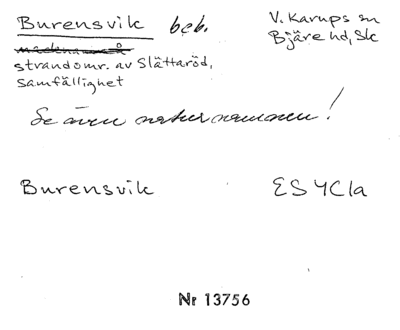 Burensvik beb.
V. Karups sn
Bjäre hd, Sk
strandomr. av Slättaröd,
samfällighet
Se även naturnamnen!
Burensvik ES4C1a
Nr 13756